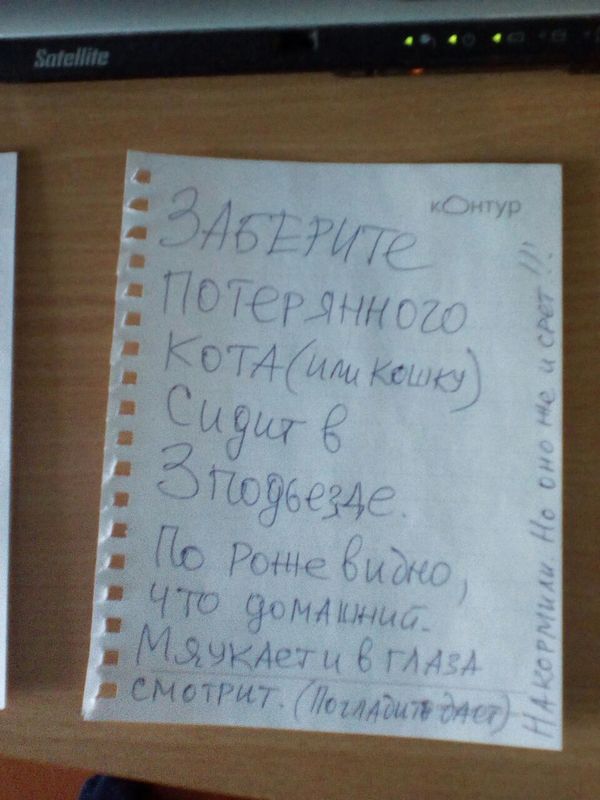 Satellite
кОнтур
ЗАБЕРИТЕ
ПОТЕРЯННОГО
КОТА (ИЛИ КОШКУ)
СИДИТ В
3 ПОДЬЕЗДЕ.
ПО РОЖЕ ВИДНО,
ЧТО ДОМАШНИЙ.
МЯУКАЕТ И В ГЛАЗА
СМОТРИТ. (ПОГЛАДИТЬ ДАЕТ)
НАКОРМИЛИ. НО ОНО ЖЕ И СРЕТ!!!